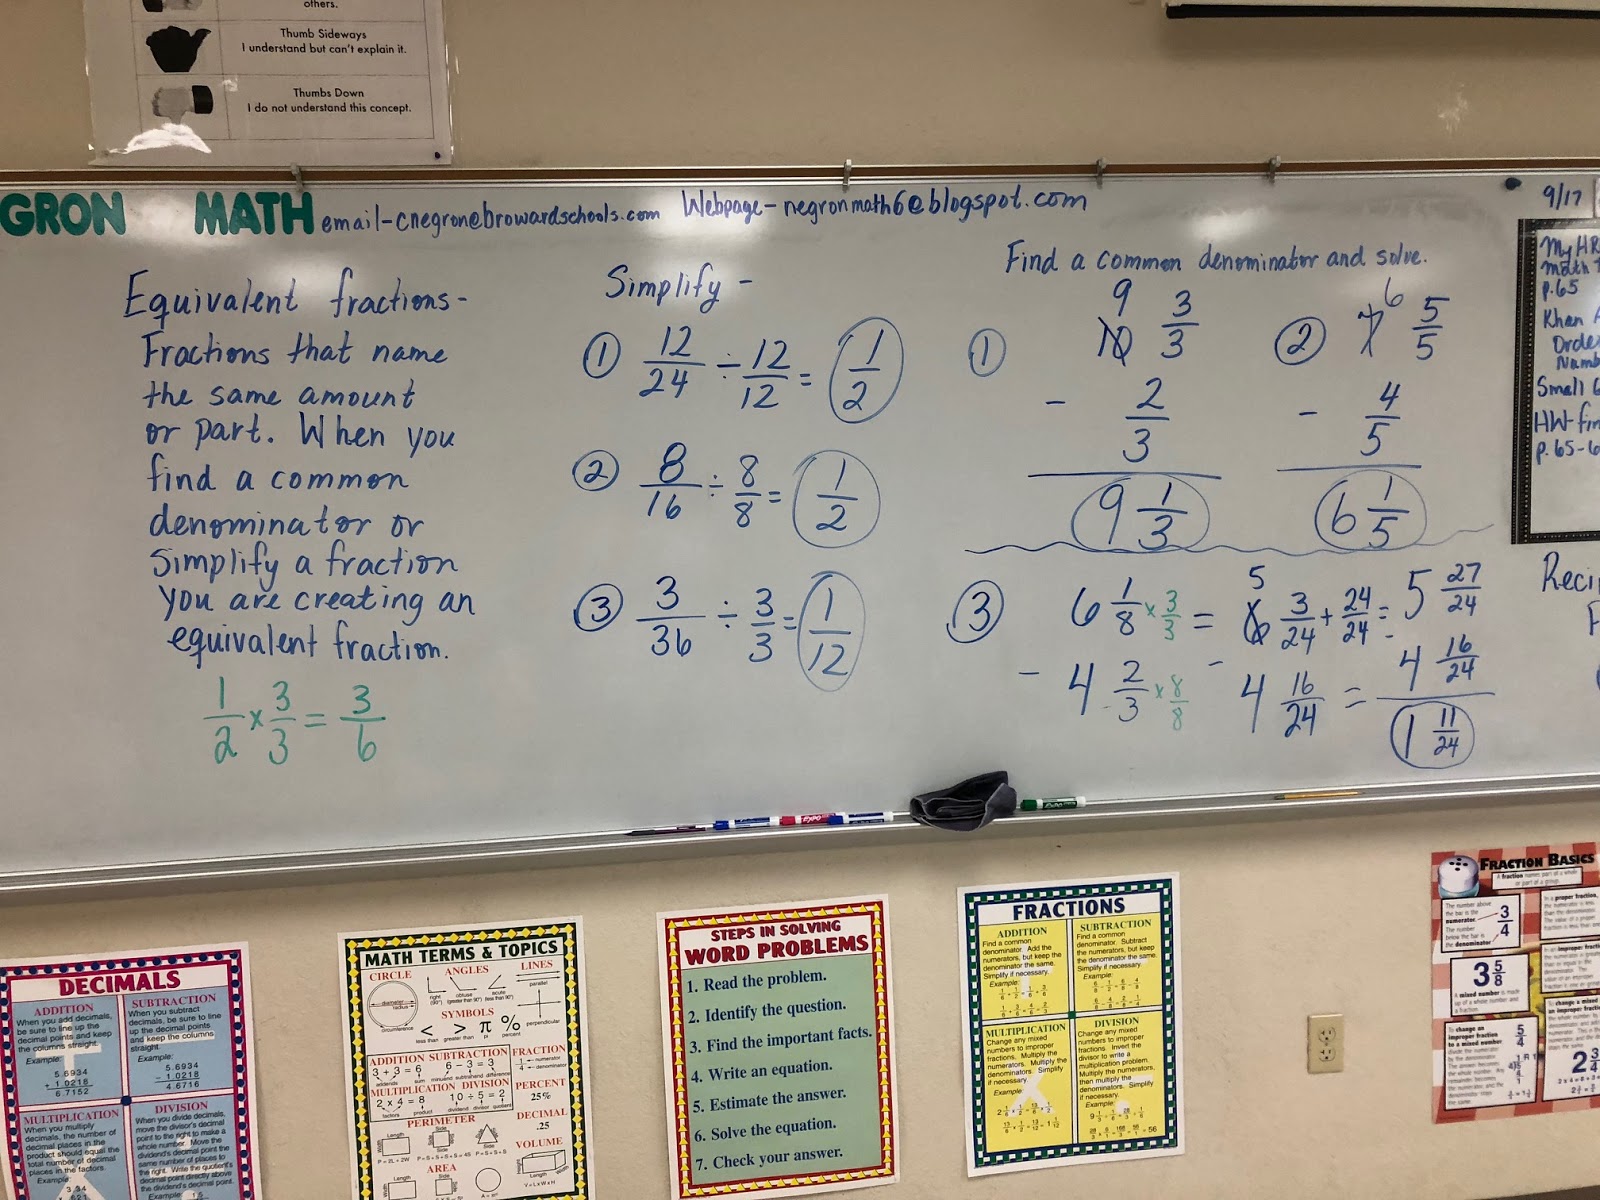 others.
Thumb Sideways
I understand but can't explain it.
Thumbs Down
I do not understand this concept.
GRON MATH email-cnegron@browardschools.com Webpage-negronmath6@blogspot.com
9/17
Equivalent fractions-
Fractions that name
the same amount
or part. When you
find a common
denominator or
simplify a fraction
you are creating an
equivalent fraction.
1/2 × 3/3 = 3/6
Simplify-
① 12/24 ÷ 12/12 = 1/2
② 8/16 ÷ 8/8 = 1/2
③ 3/36 ÷ 3/3 = 1/12
Find a common denominator and solve.
① 9
10 3/3
- 2/3
9 1/3
② 6
7 5/5
- 4/5
6 1/5
③ 6 1/8 × 3/3 = 5 6 3/24 + 24/24 = 5 27/24
- 4 2/3 × 8/8 - 4 16/24 = - 4 16/24
1 11/24
My HR
math
p.65
Khan
Orde
Numb
Small
HW-fin
p.65-6
Reci
DECIMALS
ADDITION
When you add decimals,
be sure to line up the
decimal points and keep
the columns straight.
Example:
5.6934
+ 1.0218
6.7152
SUBTRACTION
When you subtract
decimals, be sure to line
up the decimal points
and keep the columns
straight.
Example:
5.6934
- 1.0218
4.6716
MULTIPLICATION
When you multiply
decimals, the number of
decimal places in the
product should equal the
total number of decimal
places in the factors.
Example:
3.34
DIVISION
When you divide decimals,
move the divisor's decimal
point to the right to make a
whole number. Move the
dividend's decimal point the
same number of places to
the right. Write the quotient's
decimal point directly above
the dividend's decimal point.
Example:
MATH TERMS & TOPICS
CIRCLE
diameter
radius
circumference
ANGLES
right
(90°)
obtuse
(greater than 90°)
acute
(less than 90°)
LINES
parallel
perpendicular
SYMBOLS
< > π %
less than greater than pi percent
ADDITION
3 + 3 = 6
addends sum
SUBTRACTION
6 - 3 = 3
minuend subtrahend difference
FRACTION
1 numerator
4 denominator
MULTIPLICATION
2 x 4 = 8
factors product
DIVISION
10 ÷ 5 = 2
dividend divisor quotient
PERCENT
25%
DECIMAL
.25
PERIMETER
Length
Width
P = 2L + 2W
Side
P = S + S + S + S = 4S
P = S + S + S
VOLUME
Length
V = L x W x H
AREA
Length
Side
STEPS IN SOLVING
WORD PROBLEMS
1. Read the problem.
2. Identify the question.
3. Find the important facts.
4. Write an equation.
5. Estimate the answer.
6. Solve the equation.
7. Check your answer.
FRACTIONS
ADDITION
Find a common
denominator. Add the
numerators, but keep
the denominator the same.
Simplify if necessary.
Example:
SUBTRACTION
Find a common
denominator. Subtract
the numerators, but keep
the denominator the same.
Simplify if necessary.
Example:
MULTIPLICATION
Change any mixed
numbers to improper
fractions. Multiply the
numerators. Multiply the
denominators. Simplify
if necessary.
Example:
DIVISION
Change any mixed
numbers to improper
fractions. Invert the
divisor to write a
multiplication problem.
Multiply the numerators,
then multiply the
denominators. Simplify
if necessary.
Example:
= 56
FRACTION BASICS
A fraction names part of a whole
or part of a group.
The number above
the bar is the
numerator.
The number
below the bar is
the denominator.
3/4
3 5/8
A mixed number is made
up of a whole number and
a fraction.
To change an
improper fraction
to a mixed number
5/4
2 3/4